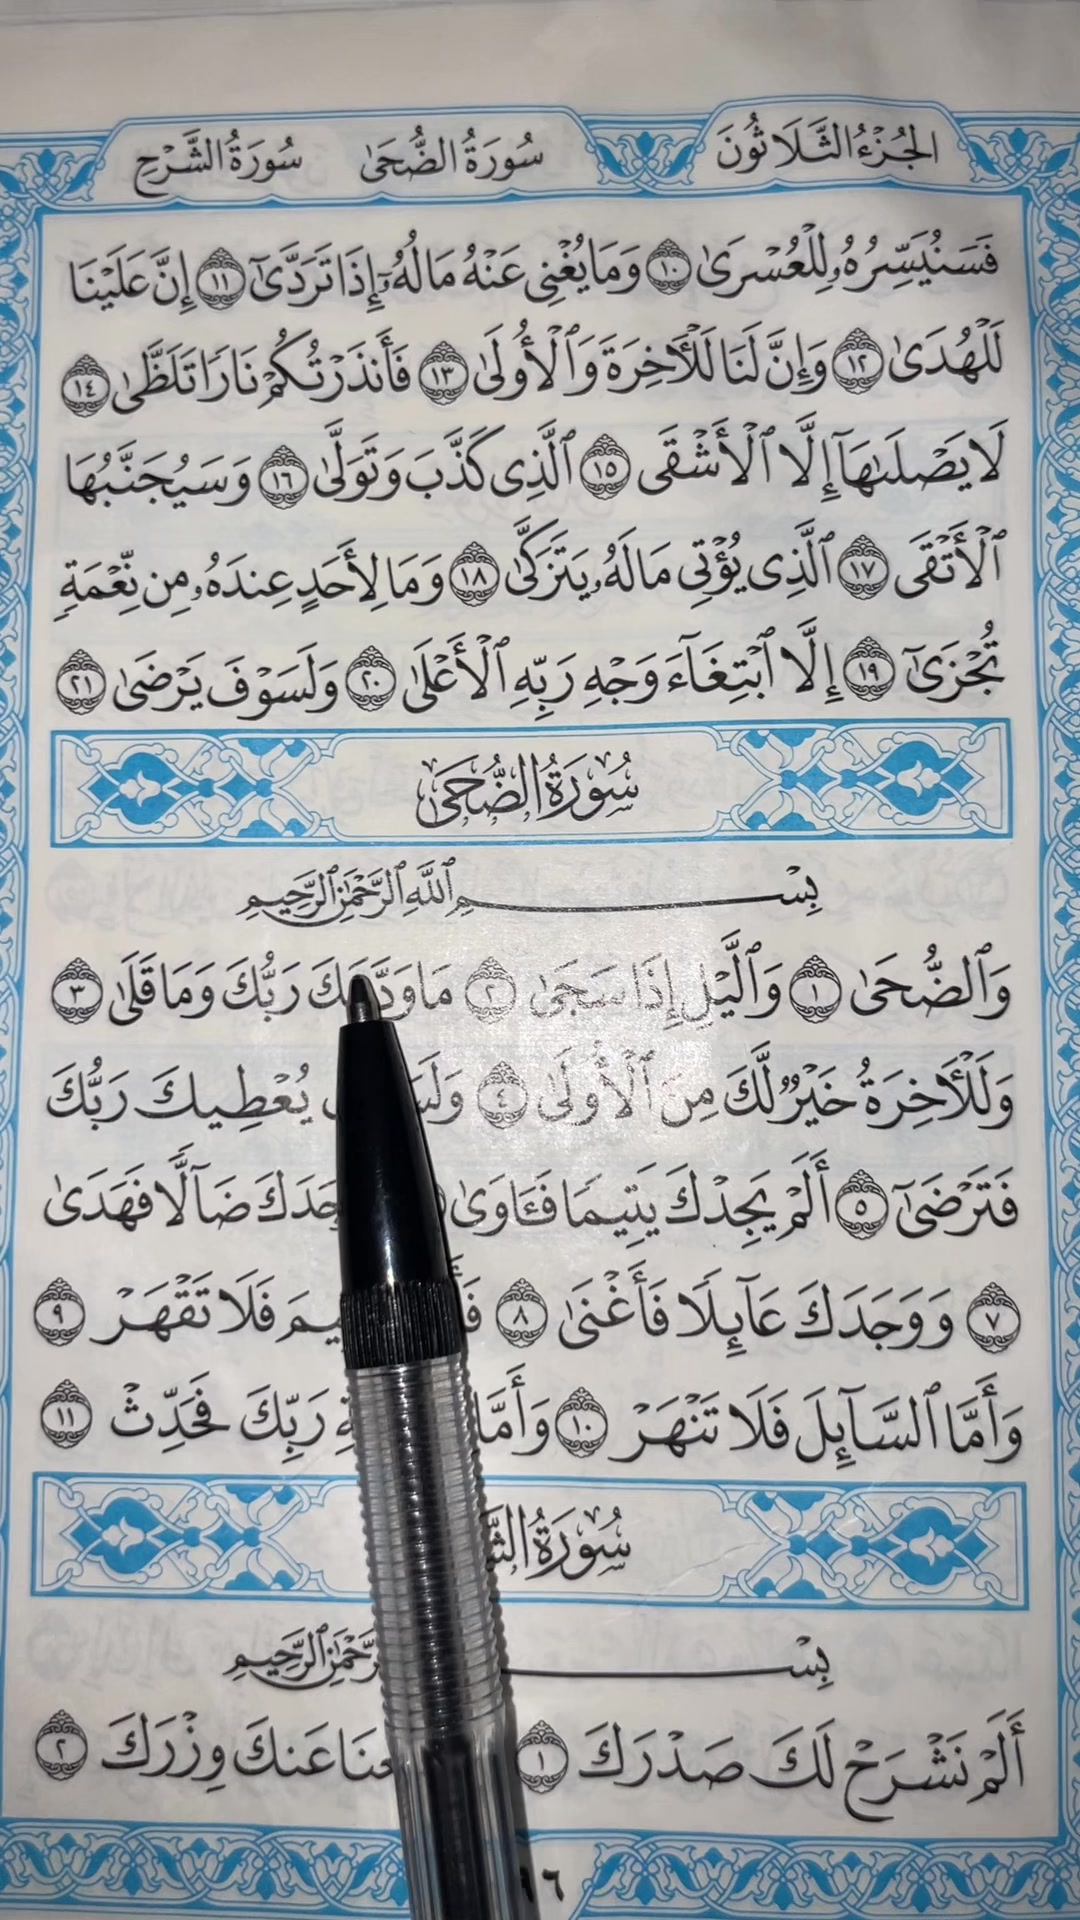 الجُزْءُ الثَّلَاثُونَ سُورَةُ الضُّحَىٰ سُورَةُ الشَّرْحِ
فَسَنُيَسِّرُهُۥ لِلْعُسْرَىٰ ١٠ وَمَا يُغْنِى عَنْهُ مَالُهُۥٓ إِذَا تَرَدَّىٰٓ ١١ إِنَّ عَلَيْنَا
لَلْهُدَىٰ ١٢ وَإِنَّ لَنَا لَلْأَخِرَةَ وَٱلْأُولَىٰ ١٣ فَأَنذَرْتُكُمْ نَارًا تَلَظَّىٰ ١٤
لَا يَصْلَىٰهَآ إِلَّا ٱلْأَشْقَى ١٥ ٱلَّذِى كَذَّبَ وَتَوَلَّىٰ ١٦ وَسَيُجَنَّبُهَا
ٱلْأَتْقَى ١٧ ٱلَّذِى يُؤْتِى مَالَهُۥ يَتَزَكَّىٰ ١٨ وَمَا لِأَحَدٍ عِندَهُۥ مِن نِّعْمَةٍ
تُجْزَىٰٓ ١٩ إِلَّا ٱبْتِغَآءَ وَجْهِ رَبِّهِ ٱلْأَعْلَىٰ ٢٠ وَلَسَوْفَ يَرْضَىٰ ٢١
سُورَةُ الضُّحَىٰ
بِسْمِ ٱللَّهِ ٱلرَّحْمَٰنِ ٱلرَّحِيمِ
وَٱلضُّحَىٰ ١ وَٱلَّيْلِ إِذَا سَجَىٰ ٢ مَا رَبُّكَ وَمَا قَلَىٰ ٣
وَلَلْأَخِرَةُ خَيْرٌ لَّكَ مِنَ ٱلْأُولَىٰ ٤ يُعْطِيكَ رَبُّكَ
فَتَرْضَىٰٓ ٥ أَلَمْ يَجِدْكَ يَتِيمًا فَـَٔاوَىٰ ضَآلًّا فَهَدَىٰ
٧ وَوَجَدَكَ عَآئِلًا فَأَغْنَىٰ ٨ فَلَا تَقْهَرْ ٩
وَأَمَّا ٱلسَّآئِلَ فَلَا تَنْهَرْ ١٠ وَأَمَّا رَبِّكَ فَحَدِّثْ ١١
سُورَةُ
بِسْ ٱلرَّحِيمِ
أَلَمْ نَشْرَحْ لَكَ صَدْرَكَ ١ عَنكَ وِزْرَكَ ٢